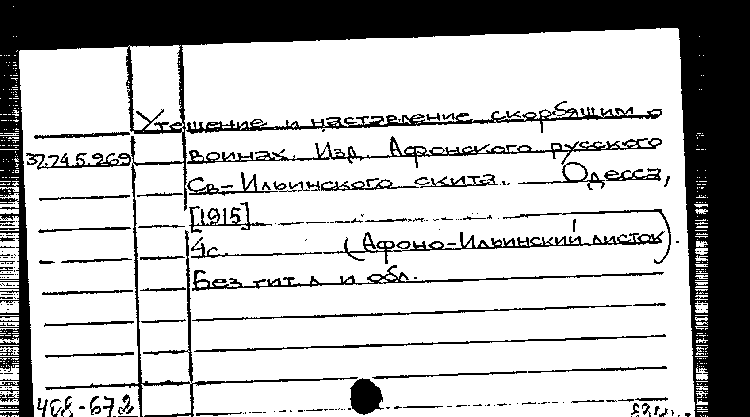 Утешение и наставление скорбящим о
37.74.5.969 воинах. Изд. Афонского русского
Св-Ильинского скита. Одесса,
[1915]
4с. (Афоно-Ильинский листок).
Без тит. л и обл.
468-672